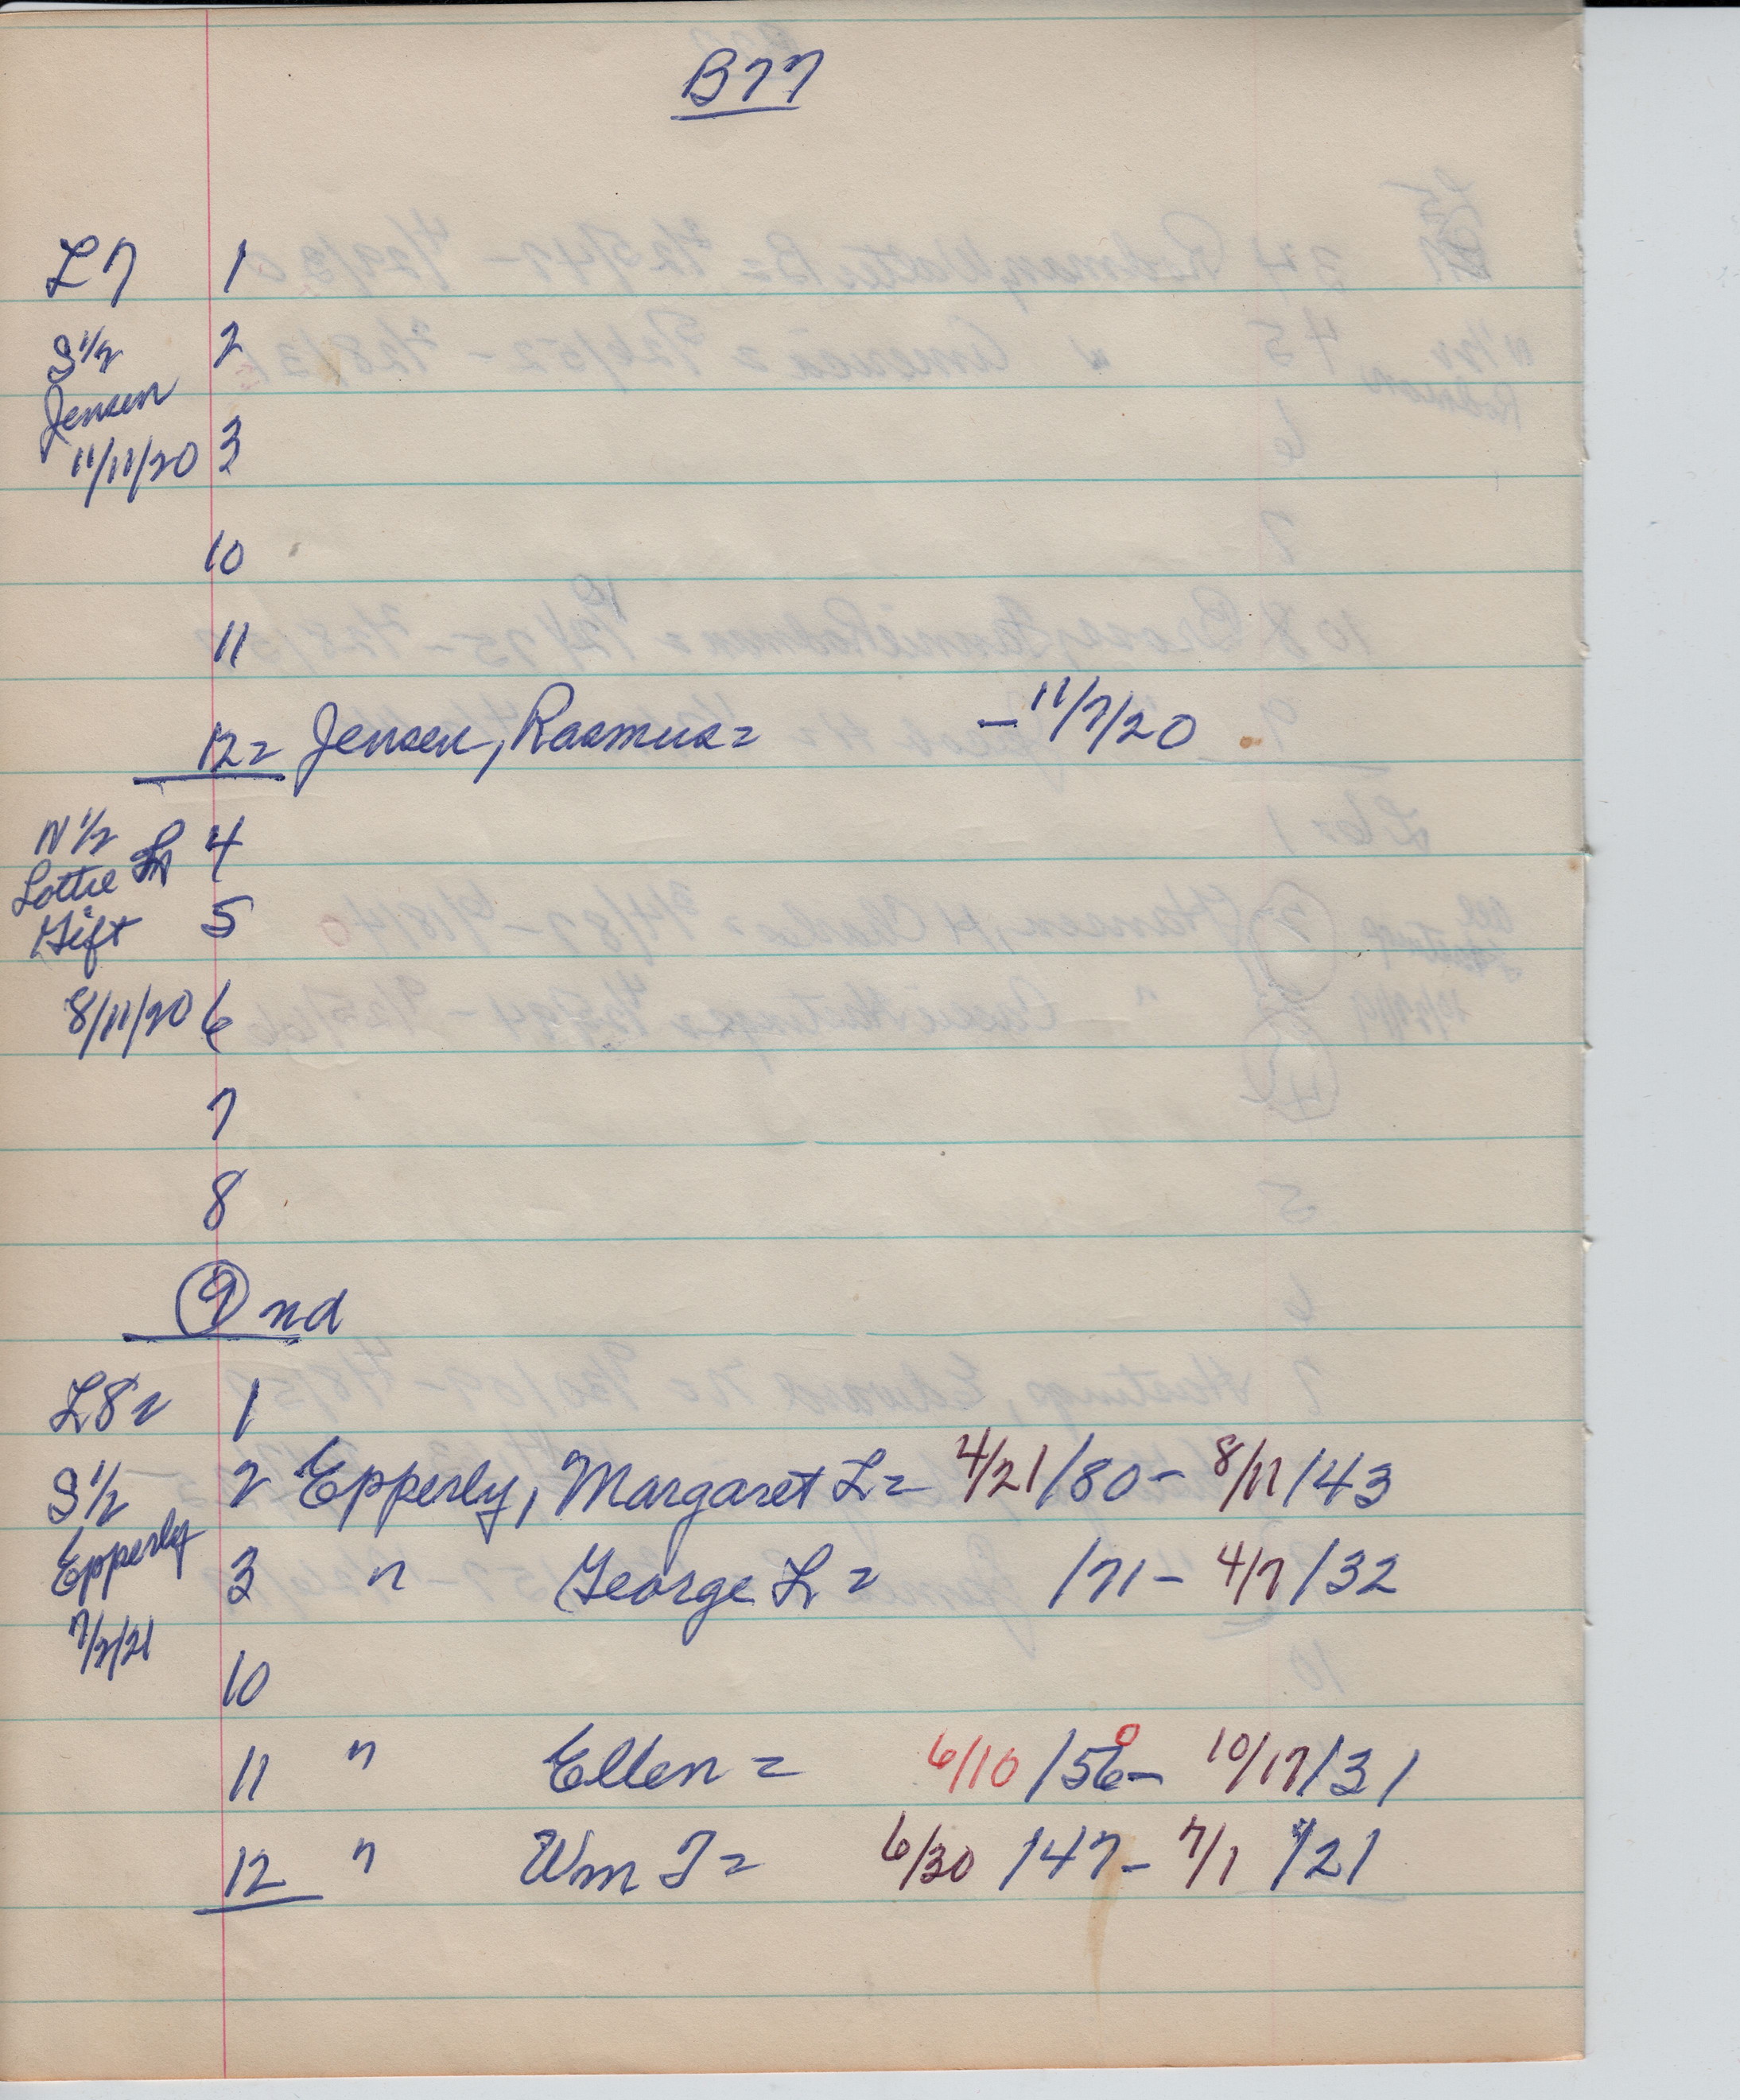 B77
L7 1
S 1/2 2
Jensen
11/11/20 3
10
11
12= Jensen, Rasmus= - 11/7/20
N 1/2 4
Lottie
Gift 5
8/11/20 6
7
8
9 nd
L8= 1
S 1/2 2 Epperly, Margaret L= 4/21/80- 8/11/43
Epperly 3 " George L= /71- 4/7/32
7/2/21
10
11 " Ellen= 6/10/56- 10/17/31
0
12 " Wm T= 6/30/47- 7/1/21